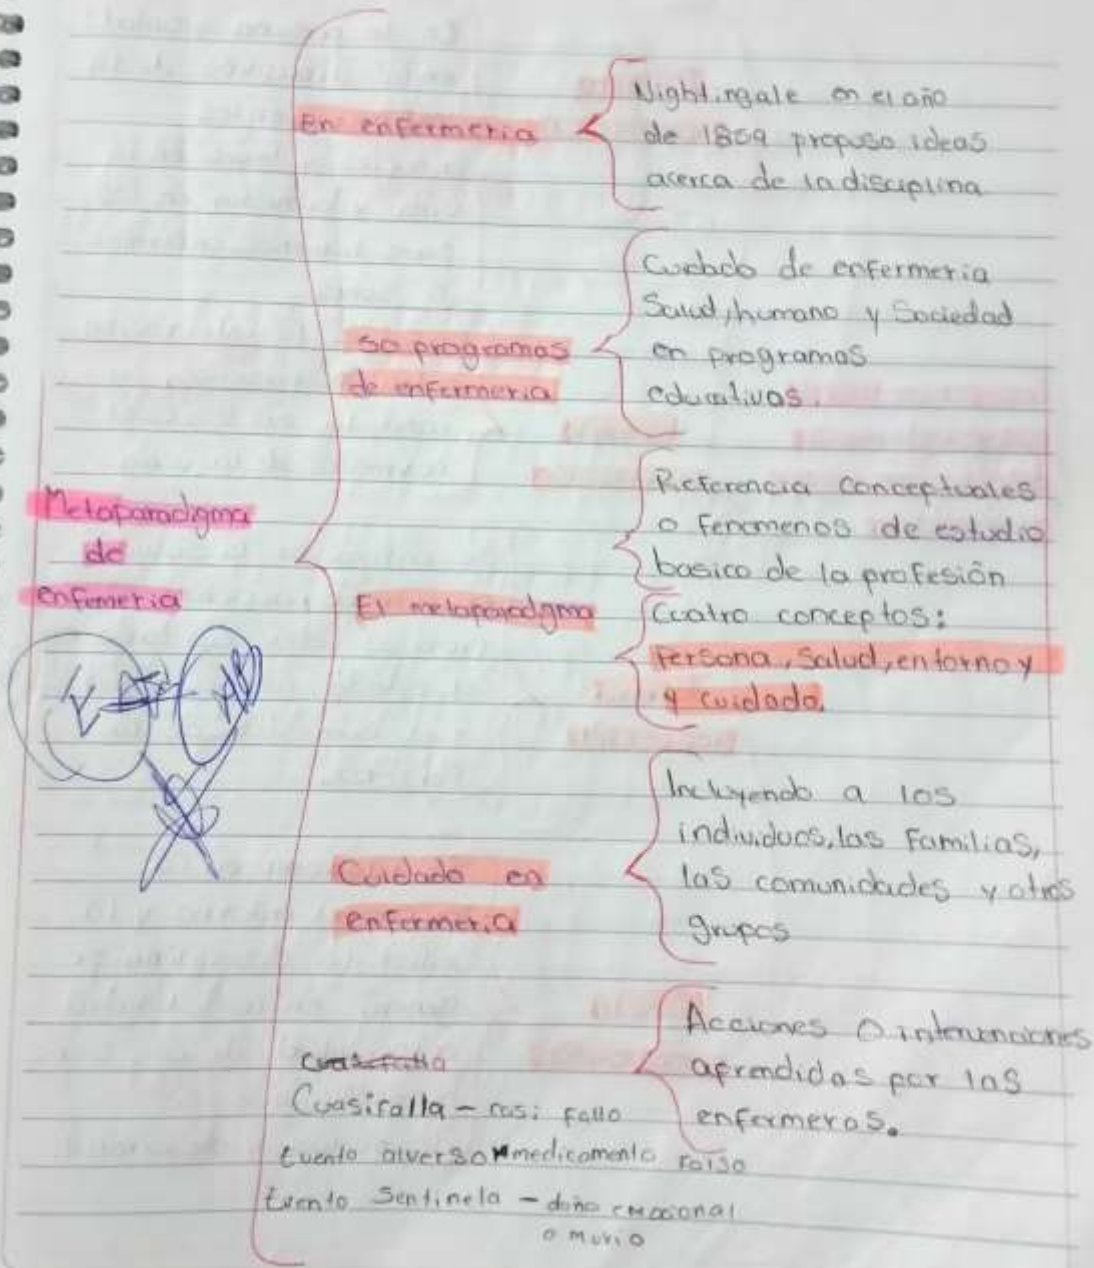 Metaparadigma
de
enfemeria
en enfermeria
Nightingale en el año
de 1859 propuso ideas
acerca de la disciplina
50 programas
de enfermeria
Cuidado de enfermeria
Salud, humano y Sociedad
en programas
educativos.
El metaparadigma
Referencia conceptuales
o fenomenos de estudio
basico de la profesión
Cuatro conceptos:
Persona, Salud, entorno y
y cuidado.
Cuidado en
enfermeria
Incluyendo a los
individuos, las Familias,
las comunidades y otros
grupos
Acciones o intervenciones
aprendidas por las
enfermeras.
Cuasifalla - casi fallo
Evento alverso medicamento falso
Evento Sentinela - daño emocional
o murio